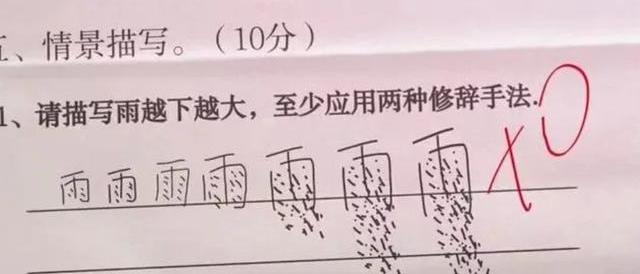 、情景描写。（10分）
1、请描写雨越下越大，至少应用两种修辞手法.
雨雨雨雨雨雨雨 ×0